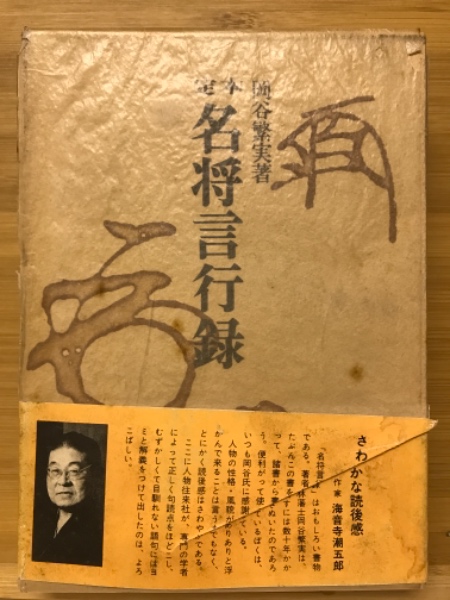 岡谷繁実著
定本
名将言行録
さわやかな読後感
作家 海音寺潮五郎
「名将言行録」はおもしろい書物
である。著者館林藩士岡谷繁実は、
たぶんこの書を著わすには数十年かか
って、諸書から書きぬいたのであろ
う。便利がって使っているぼくは、
いつも岡谷氏に感謝している。
人物の性格・風貌がありありと浮
かんで来ることは言うまでもなく、
とにかく読後感はさわやかである。
ここに人物往来社が、専門の学者
によって正しく句読点をほどこし、
むずかしくて目馴れない語句にはヨ
ミと解義をつけて出したのは、よろ
こばしい。